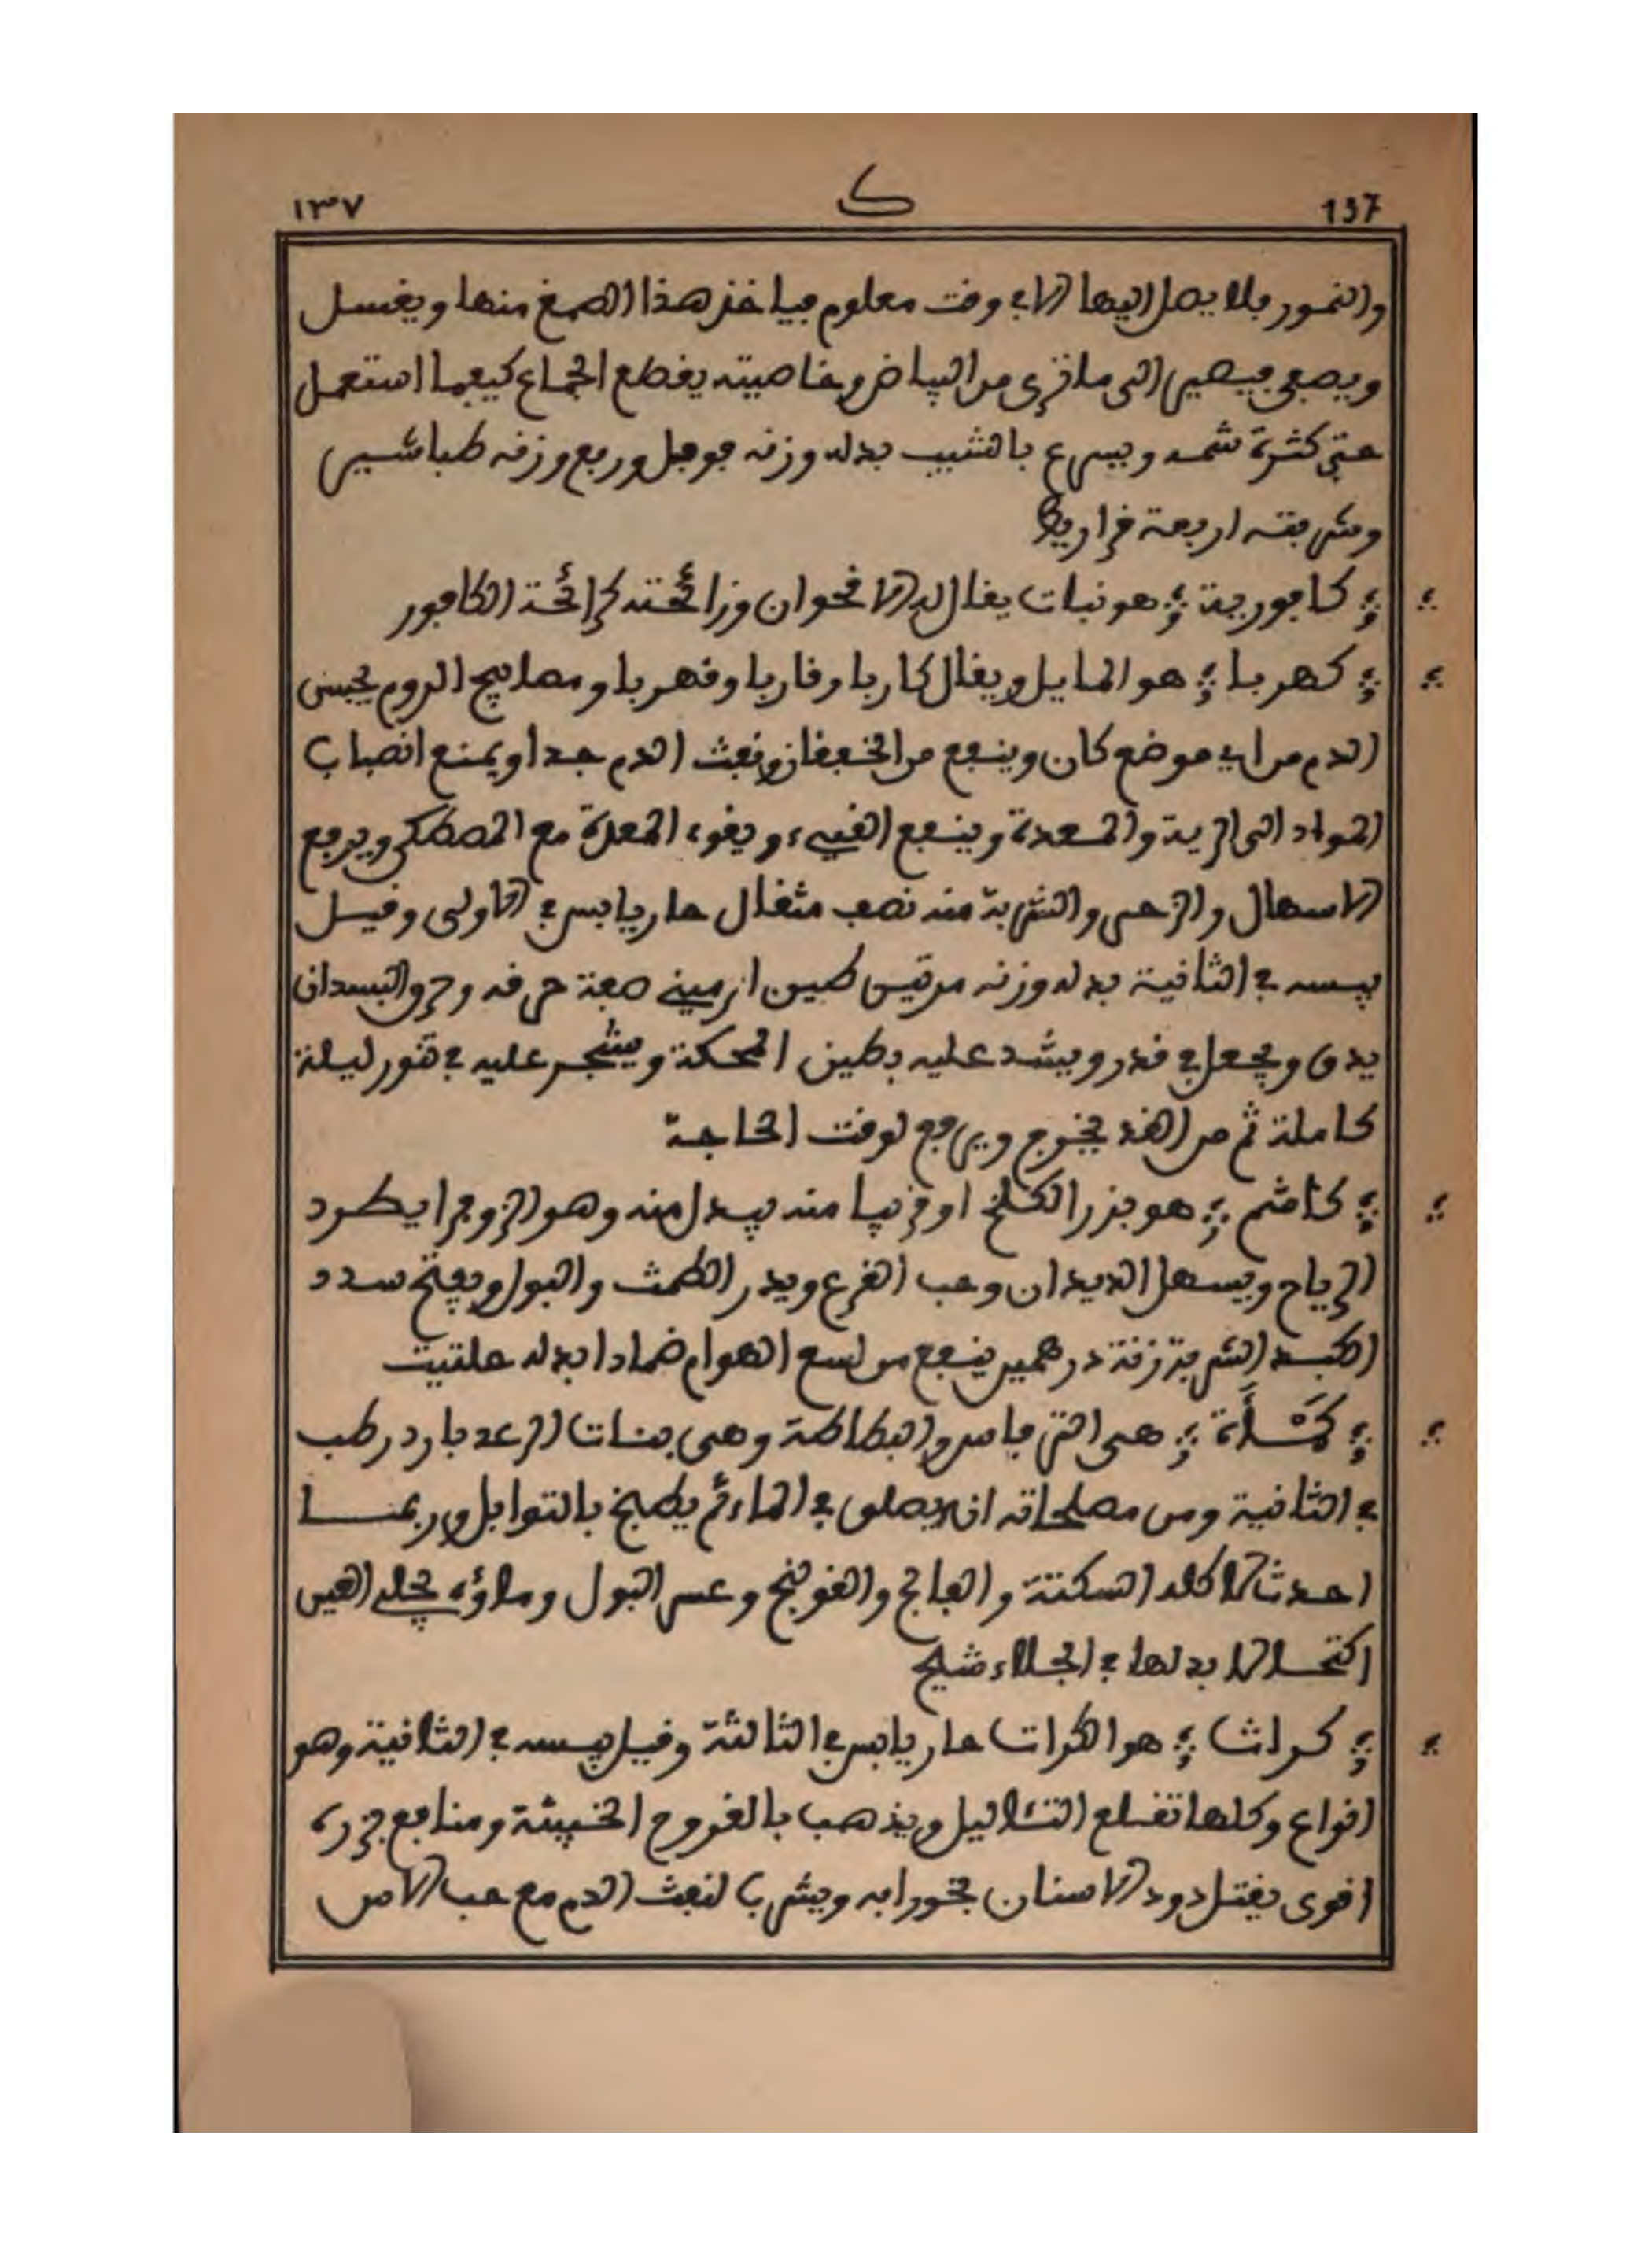 137 ك ١٣٧
والنمور فلا يصل اليها الا في وقت معلوم فياخذ هذا الصمغ منها ويغسل
ويصفى فيصير الى ما ترى من البياض وخاصيته يقطع الجماع كيفما استعمل
حتى كثرة شمه ويسرع بالشيب بدله وزنه فوفل وربع وزنه طباشير
وشربته اربعة قراريط
؛ كافورية ؛ هو نبات يقال له الاقحوان ورائحته كرائحة الكافور
؛ كهربا ؛ هو المايل ويقال كاربا وقاربا وقهربا ومصابيح الروم يحبس
الدم من اي موضع كان وينفع من الخفقان ونفث الدم جدا ويمنع انصباب
المواد الى الرية والمعدة وينفع القيىء ويقوي المعدة مع المصطكى ويرفع
الاسهال والزحير والشربة منه نصف مثقال حار يابس في الاولى وقيل
يبسه في الثانية بدله وزنه مرتين طين ارميني صفة حرقه وحرق البسدان
يدق ويجعل في قدر ويشد عليه بطين الحكمة ويشجر عليه في تنور ليلة
كاملة ثم من الغد يخرج ويرفع لوقت الحاجة
؛ كاشم ؛ هو بزر الكلخ او قريبا منه يبدل منه وهو الزوفرا يطرد
الرياح ويسهل الديدان وحب القرع ويدر الطمث والبول ويفتح سدد
الكبد الشربة زنة درهمين ينفع من لسع الهوام ضمادا بدله حلتيت
؛ كمأة ؛ هي الترفاس والبطاطة وهي بنات الرعد بارد رطب
في الثانية ومن مصلحاته ان يصلق في الماء ثم يطبخ بالتوابل وربمـا
احدث اكله السكتة والفالج والقولنج وعسر البول وماؤه يجلي العين
اكتحالا بدلها في الجلاء شيح
؛ كراث ؛ هو الكرات حار يابس في الثالثة وقيل يبسه في الثانية وهو
انواع وكلها تقلع الثئاليل ويذهب بالقروح الخبيثة ومنافع بزره
اقوى يقتل دود الاسنان بخورا به ويشرب لنفث الدم مع حب الاس